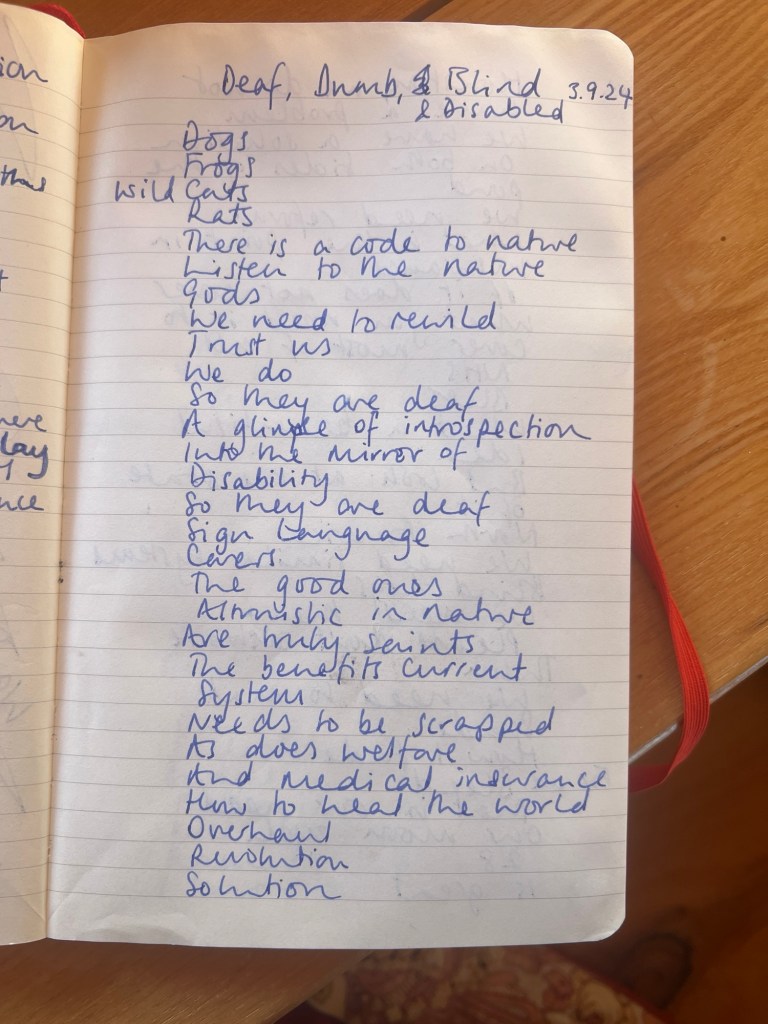 Deaf, Dumb, & Blind 3.9.24
& Disabled
Dogs
Frogs
Wild Cats
Rats
There is a code to nature
Listen to the nature
gods
We need to rewild
Trust us
We do
So they are deaf
A glimpse of introspection
Into the mirror of
Disability
So they are deaf
Sign Language
Carers
The good ones
Altruistic in nature
Are truly saints
The benefits current
System
Needs to be scrapped
As does welfare
And medical insurance
How to heal the world
Overhaul
Revolution
Solution
ion
on
lay